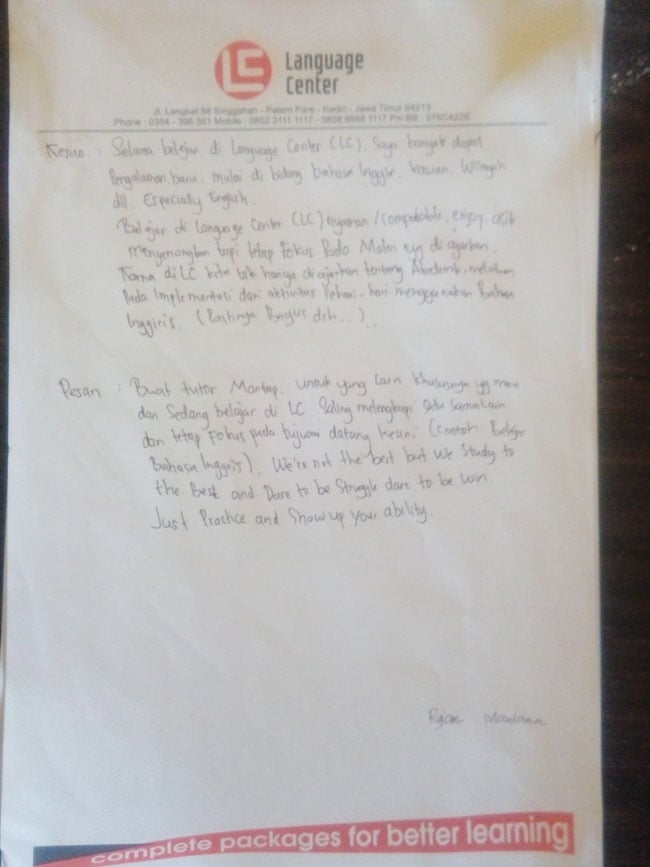 LC Language
Center
Jl. Langkat 88 Singgahan - Pelem Pare - Kediri - Jawa Timur 64213
Phone : 0354 - 396 561 Mobile : 0852 3111 1117 - 0858 6868 1117 Pin BB : 576C422E
Kesan : Selama belajar di Language Center (LC), Saya banyak dapat
Pengalaman baru, mulai di bidang bahasa Inggle, Wawasan, Wilayah
dll, Especially English.
Belajar di Language Center (LC) nyaman / comportable, enjoy, asik
menyenangkan tapi tetap Fokus Pada Materi yg di ajarkan.
Karna di LC kita tak hanya di ajarkan tentang Akademik, melainkan
Pada Implementasi dari aktivitas Sehari-hari menggunakan Bahasa
Inggiris. (Pastinya Bagus deh..)
Pesan : Buat tutor Mantap, untuk yang Lain, khususnya yg mau
dan Sedang belajar di LC. Saling melengkapi satu sama lain
dan tetap Fokus pada tujuan datang kesini (contoh: Belajar
Bahasa Inggris). We're not the best but We Study to
the Best and Dare to be Struggle dare to be win.
Just Practice and Show up your ability.
Maulana
complete packages for better learning